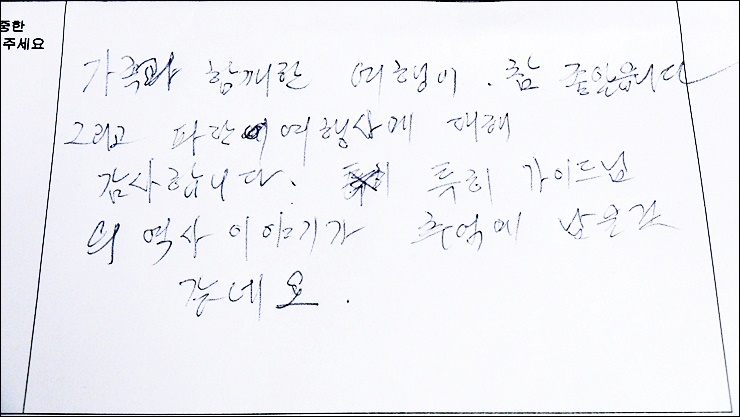 중한
주세요
가족과 함께한 여행이. 참 좋았읍니다
그리고 파란여행사에 대해
감사합니다. 특히 가이드님
의 역사 이야기가 추억에 남을것
같네요.